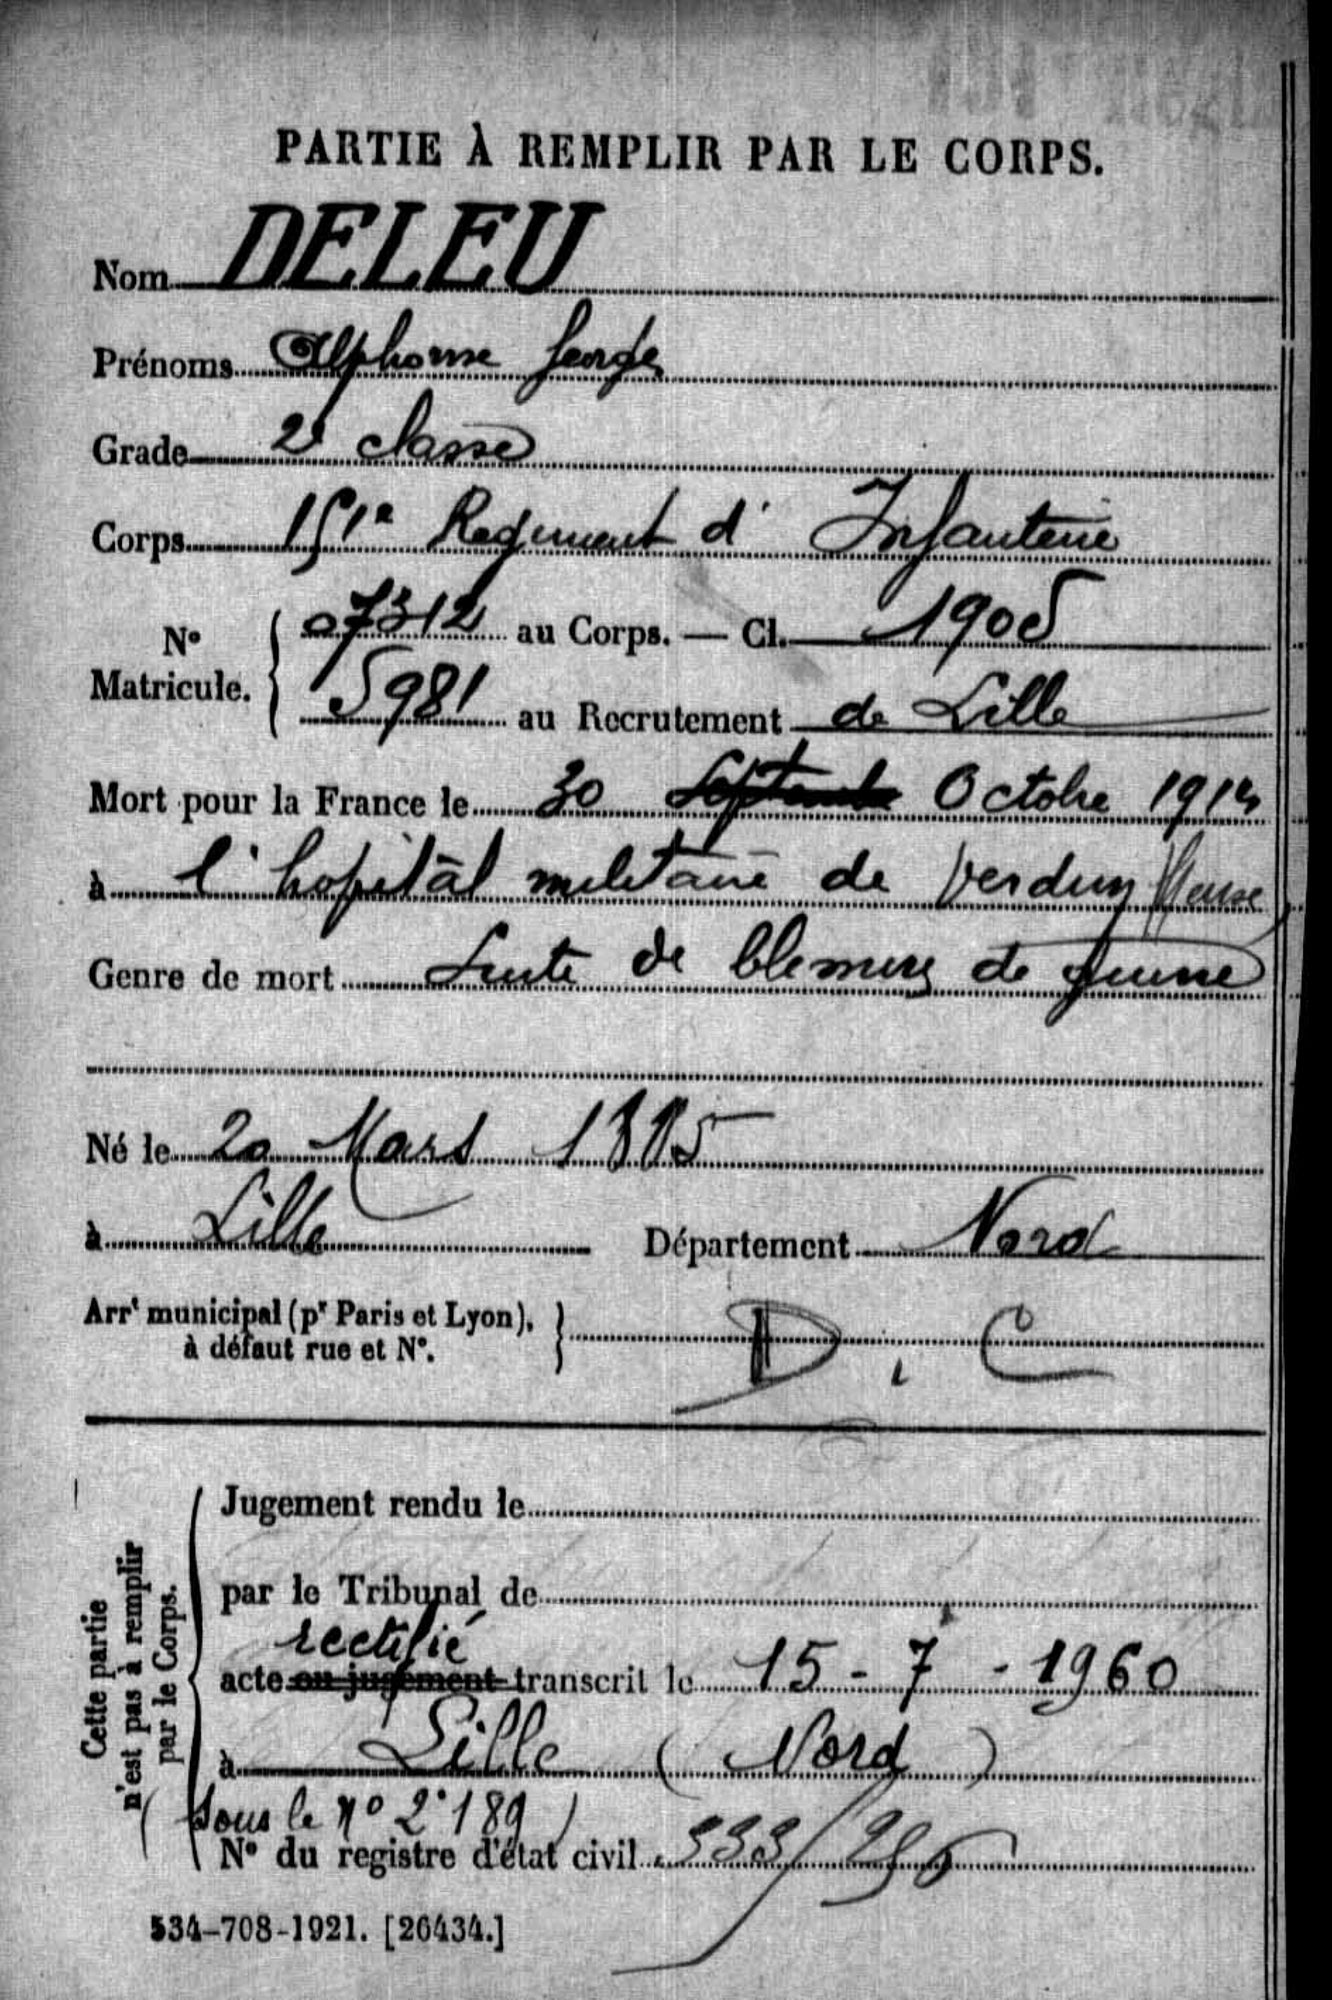 PARTIE À REMPLIR PAR LE CORPS.
Nom DELEU
Prénoms Alphonse Georges
Grade 2e classe
Corps 151e Regiment d' Infanterie
N° Matricule. 07312 au Corps. — Cl. 1905
5981 au Recrutement de Lille
Mort pour la France le 30 Septembre Octobre 1914
à l'hopital militaire de Verdun Meuse
Genre de mort Suite de blessures de guerre
Né le 20 Mars 1885
à Lille Département Nord
Arrt municipal (pr Paris et Lyon), à défaut rue et N°. D. C
Cette partie n'est pas à remplir par le Corps.
Jugement rendu le
par le Tribunal de
rectifié
acte ou jugement transcrit le 15-7-1960
à Lille (Nord)
(sous le n° 2.189)
N° du registre d'état civil
534-708-1921. [26434.]